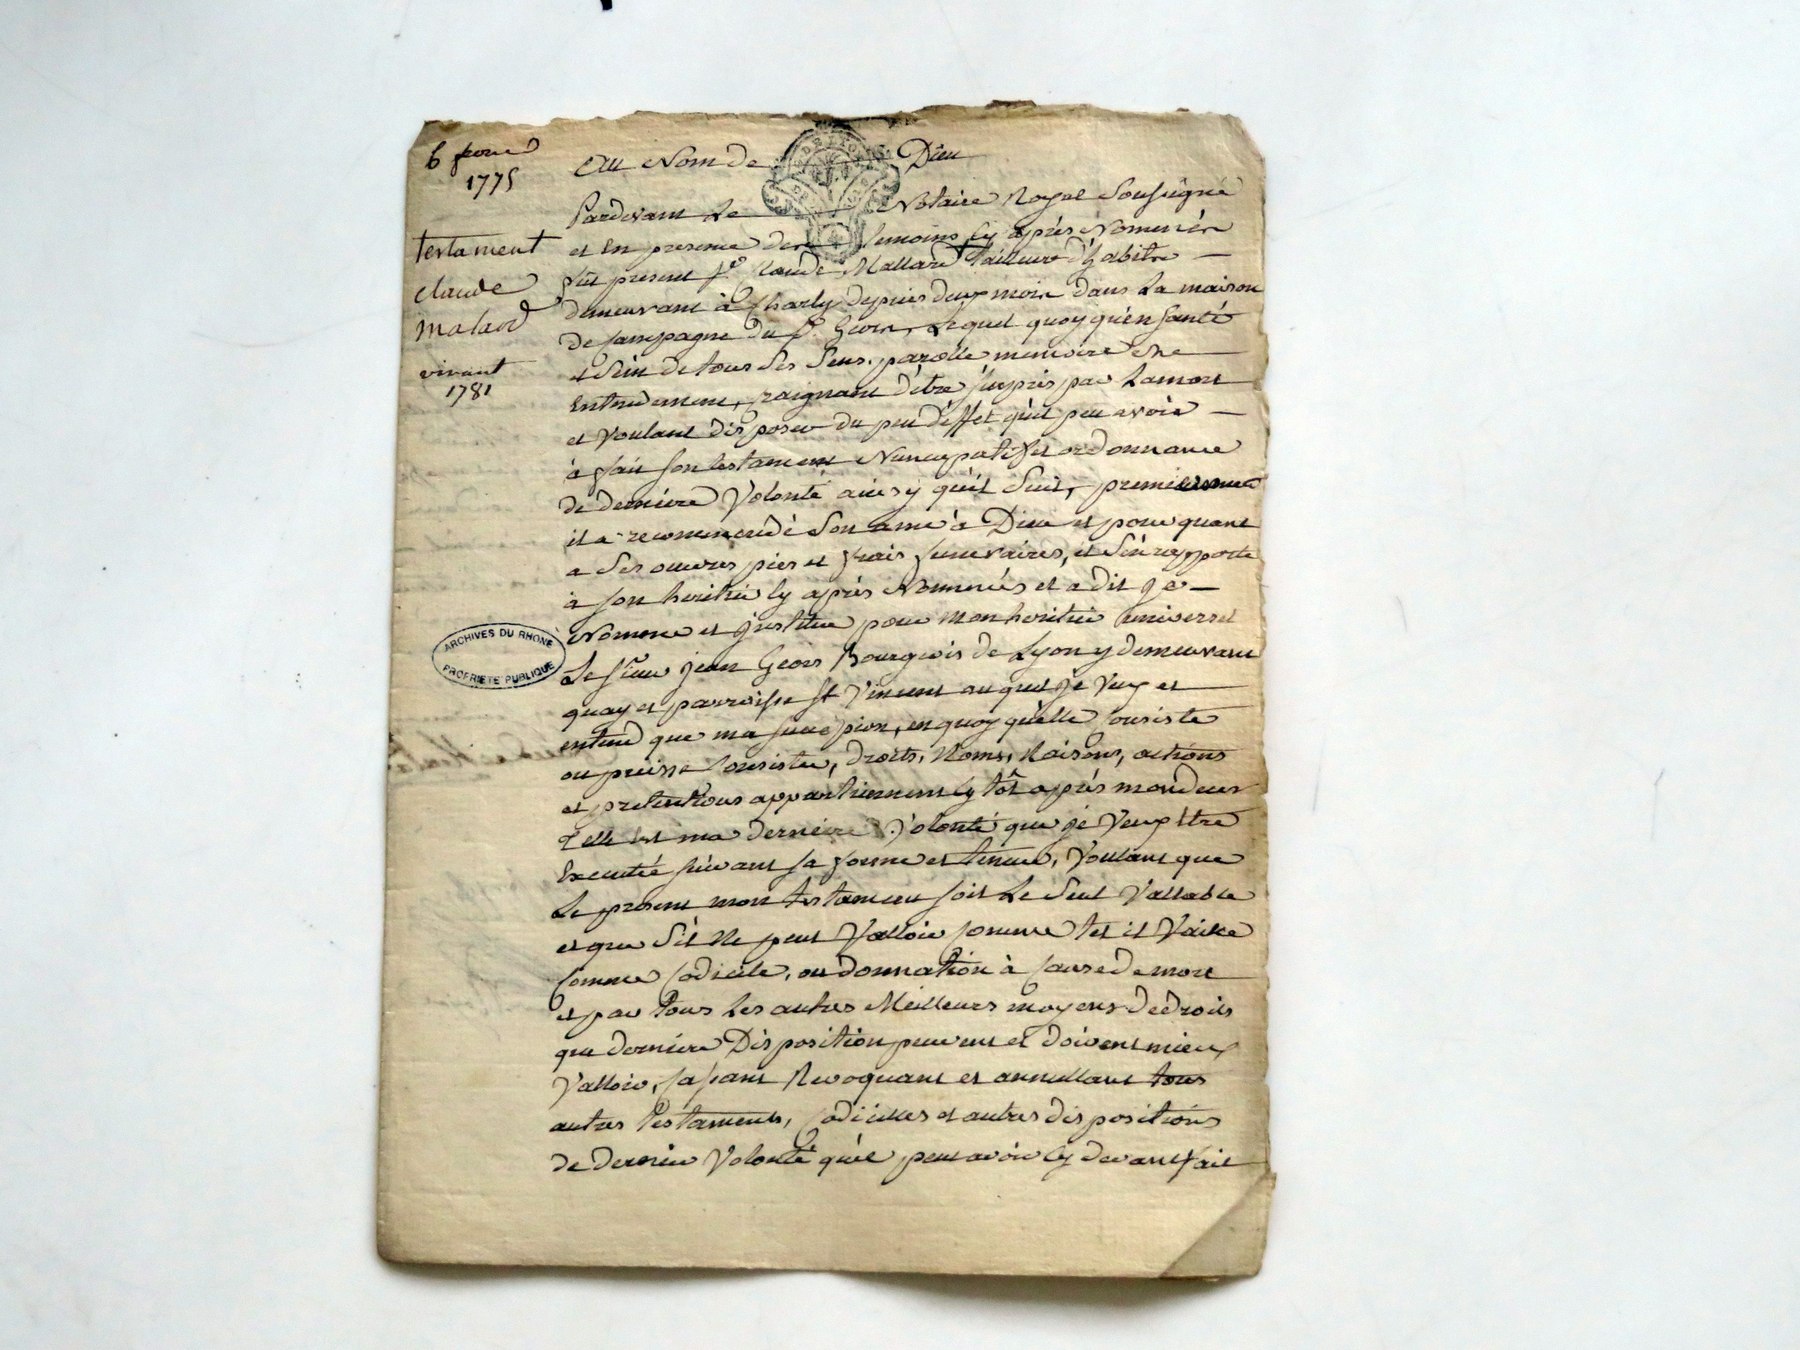 6 fevrie
1775
testament
claude
malard
vivant
1781
ARCHIVES DU RHONE
PROPRIETE PUBLIQUE
Au Nom de Dieu
Pardevant Le Notaire Royal Soussigné
et En presence des temoins Cy après Nommés
fût present Sr Claude Mallard tailleur d'habits
demeurant à Charly depuis deux mois dans La maison
de Campagne du Sr Geors, Lequel quoy qu'en Santé
et Sein de tous Ses Sens, parolle memoire et
Entendement, Craignant d'être surpris par La mort
et Voulant disposer du peu d'effet qu'il peu avoir
à fait Son testament Nuncupatif et ordonnance
de derniere Volonté ainsy qu'il Suit, premierement
il a recommendé Son ame à Dieu et pour quant
a Ses œuvres pies et frais funeraires, il S'en rapporte
à Son heritié Cy après Nommés et a dit Je
Nomme et Institue pour mon heritié universel
Le Sieur Jean Geors Bourgeois de Lyon y demeurant
quay et parroisse St Vincent auquel Je Veux et
entend que ma succession, en quoy qu'elle Consiste
ou puisse Consister, droits, Noms, Raisons, actions
et pretentions appartiennent sytôt après mon deces
telle est ma derniere Volonté que Je Veux être
Executé suivant sa forme et teneur, Voulant que
Le present mon testament soit Le Seul Vallable
et que S'il Ne peut Valloir Comme tel il Vaille
Comme Codicile, ou donnation à Cause de mort
et par tous Les autres Meilleurs moyens de droits
que derniere Disposition peuvent et doivent mieux
Valloir, Cassant Revoquant et annullant tous
autres testaments, Codicilles et autres dispositions
de dernier Volonté qu'il peut avoir Cy devant fait